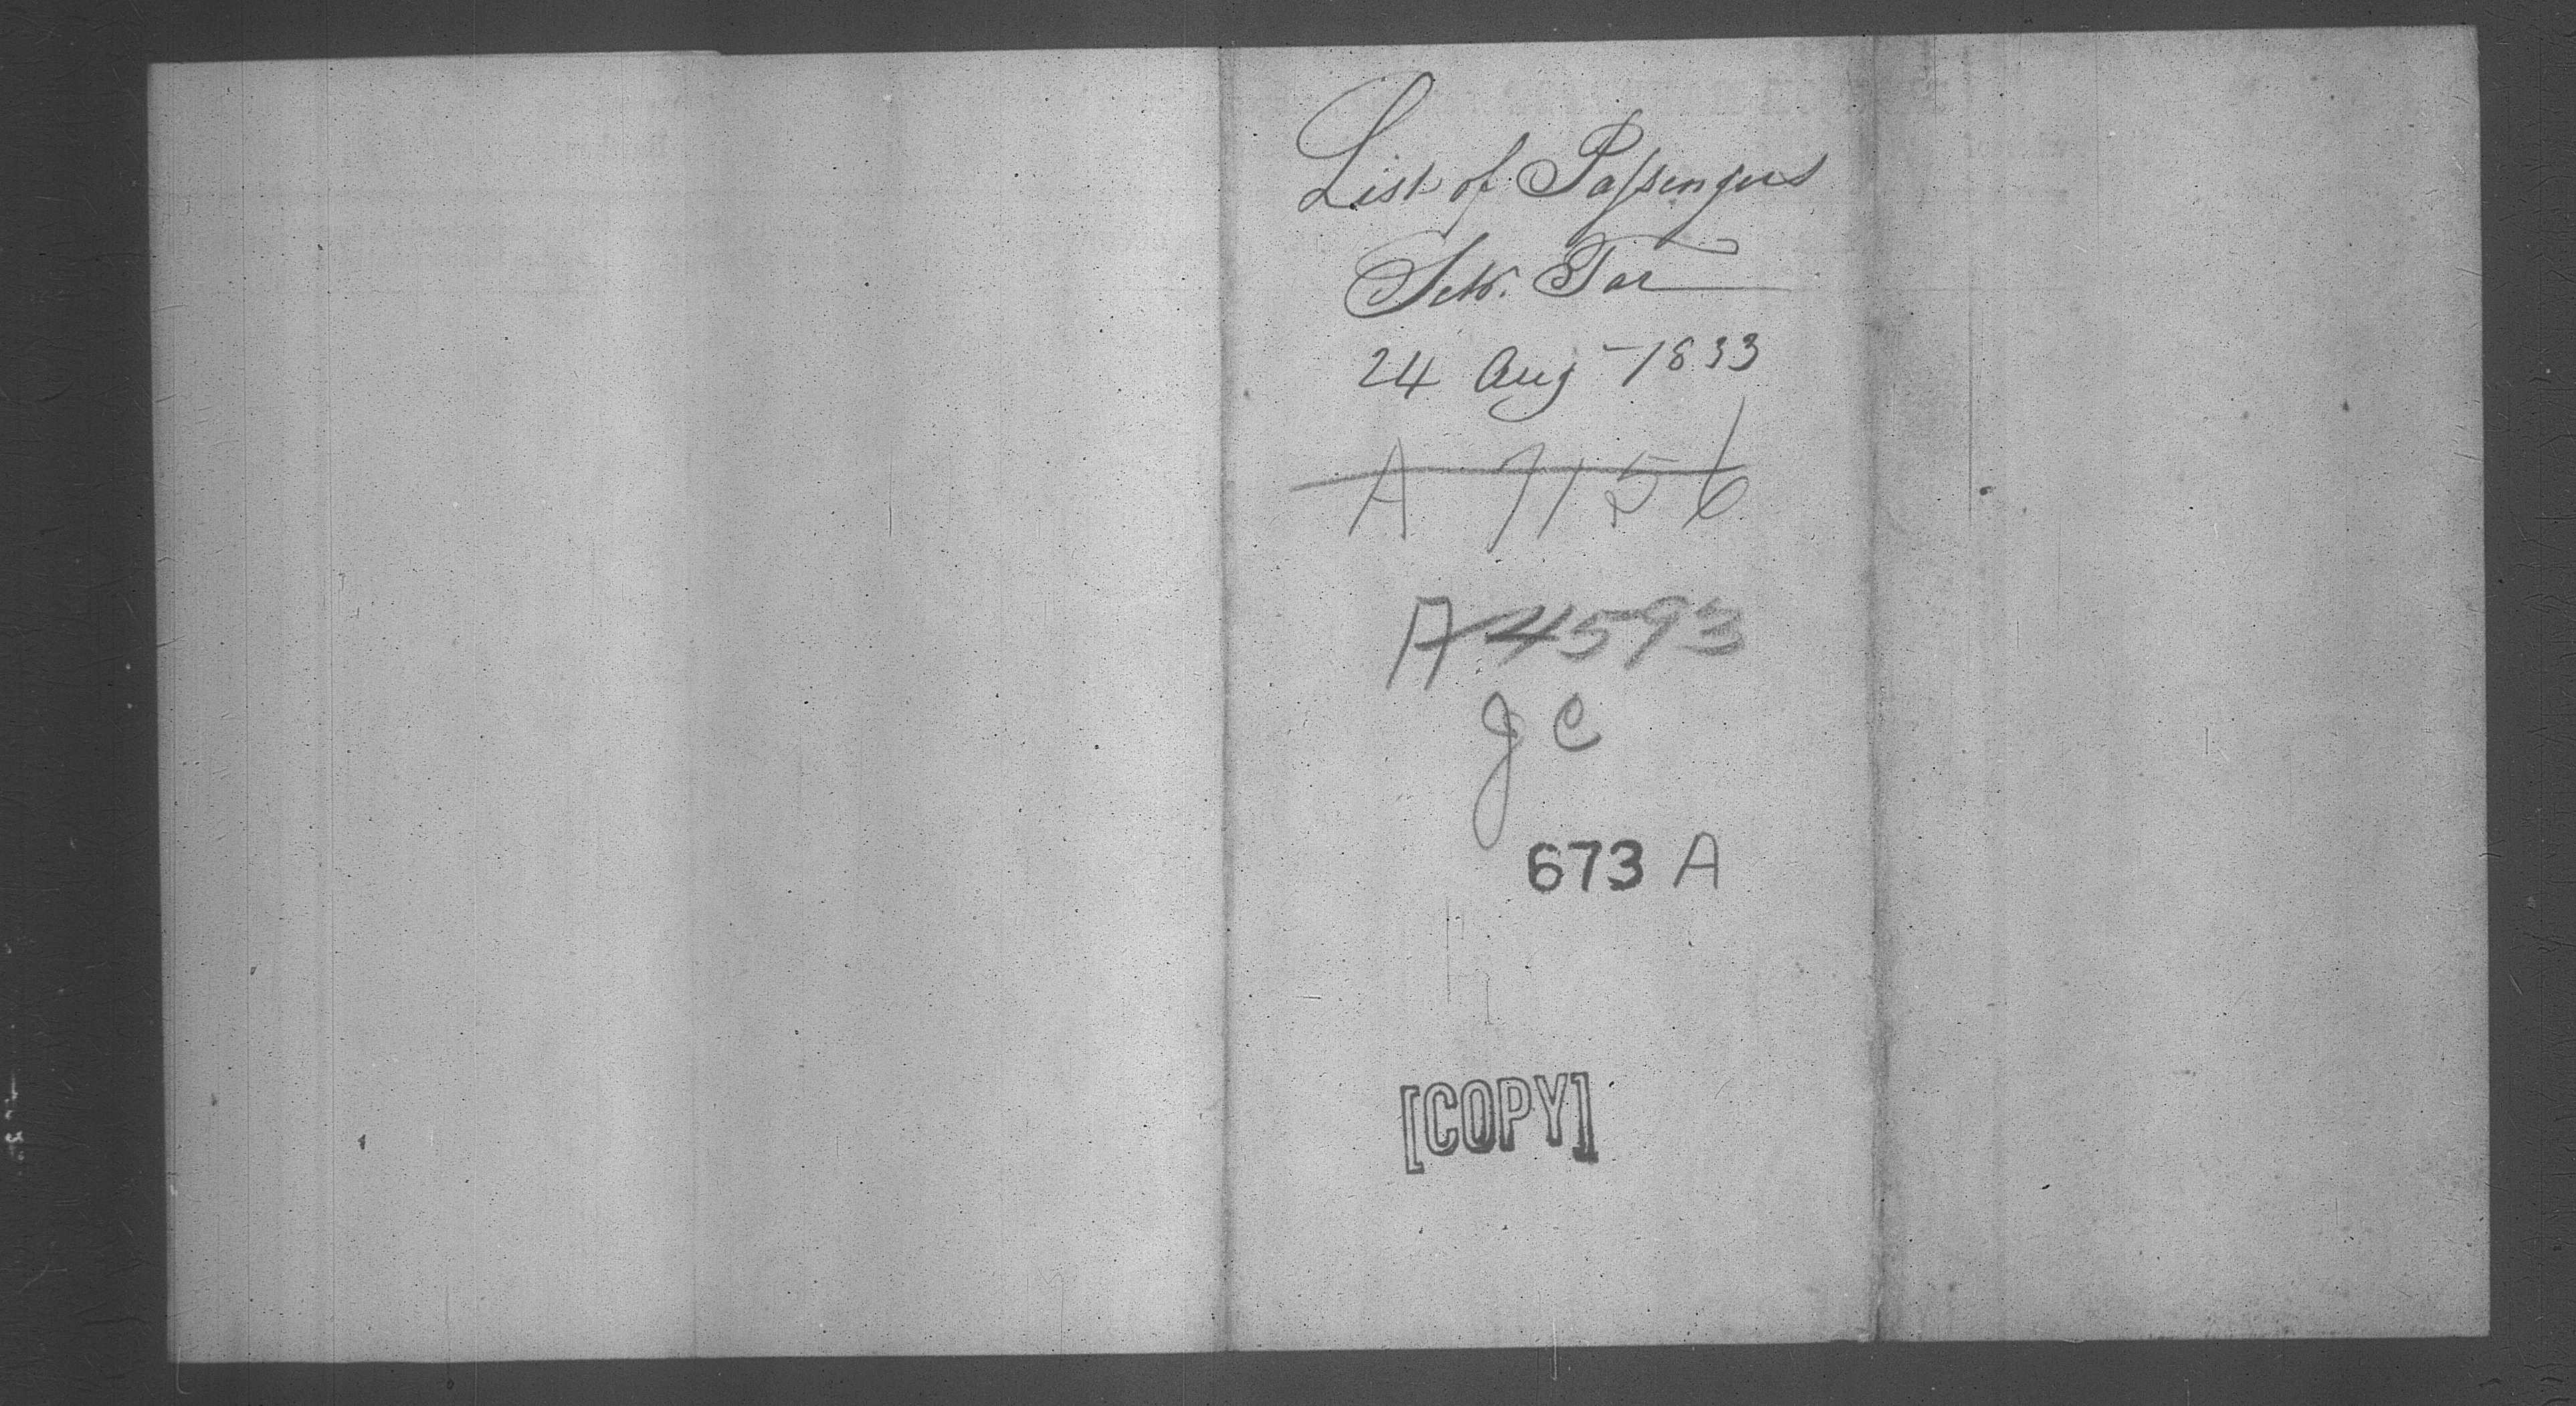 List of Passengers
Schr. Tar
24 Aug - 1833
A 7156
A 4593
JC
673 A
[COPY]